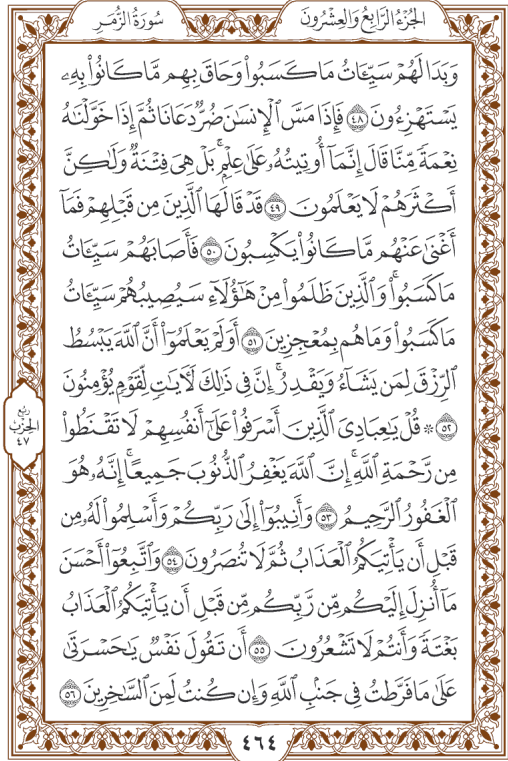 الجُزْءُ الرَّابِعُ وَالعِشْرُونَ سُورَةُ الزُّمَر
وَبَدَا لَهُمْ سَيِّـَٔاتُ مَا كَسَبُوا۟ وَحَاقَ بِهِم مَّا كَانُوا۟ بِهِۦ
يَسْتَهْزِءُونَ ٤٨ فَإِذَا مَسَّ ٱلْإِنسَٰنَ ضُرٌّ دَعَانَا ثُمَّ إِذَا خَوَّلْنَٰهُ
نِعْمَةً مِّنَّا قَالَ إِنَّمَآ أُوتِيتُهُۥ عَلَىٰ عِلْمٍۭ ۚ بَلْ هِىَ فِتْنَةٌ وَلَٰكِنَّ
أَكْثَرَهُمْ لَا يَعْلَمُونَ ٤٩ قَدْ قَالَهَا ٱلَّذِينَ مِن قَبْلِهِمْ فَمَآ
أَغْنَىٰ عَنْهُم مَّا كَانُوا۟ يَكْسِبُونَ ٥٠ فَأَصَابَهُمْ سَيِّـَٔاتُ
مَا كَسَبُوا۟ ۚ وَٱلَّذِينَ ظَلَمُوا۟ مِنْ هَٰٓؤُلَآءِ سَيُصِيبُهُمْ سَيِّـَٔاتُ
مَا كَسَبُوا۟ وَمَا هُم بِمُعْجِزِينَ ٥١ أَوَلَمْ يَعْلَمُوٓا۟ أَنَّ ٱللَّهَ يَبْسُطُ
ٱلرِّزْقَ لِمَن يَشَآءُ وَيَقْدِرُ ۚ إِنَّ فِى ذَٰلِكَ لَءَايَٰتٍ لِّقَوْمٍ يُؤْمِنُونَ
٥٢ ۞ قُلْ يَٰعِبَادِىَ ٱلَّذِينَ أَسْرَفُوا۟ عَلَىٰٓ أَنفُسِهِمْ لَا تَقْنَطُوا۟
مِن رَّحْمَةِ ٱللَّهِ ۚ إِنَّ ٱللَّهَ يَغْفِرُ ٱلذُّنُوبَ جَمِيعًا ۚ إِنَّهُۥ هُوَ
ٱلْغَفُورُ ٱلرَّحِيمُ ٥٣ وَأَنِيبُوٓا۟ إِلَىٰ رَبِّكُمْ وَأَسْلِمُوا۟ لَهُۥ مِن
قَبْلِ أَن يَأْتِيَكُمُ ٱلْعَذَابُ ثُمَّ لَا تُنصَرُونَ ٥٤ وَٱتَّبِعُوٓا۟ أَحْسَنَ
مَآ أُنزِلَ إِلَيْكُم مِّن رَّبِّكُم مِّن قَبْلِ أَن يَأْتِيَكُمُ ٱلْعَذَابُ
بَغْتَةً وَأَنتُمْ لَا تَشْعُرُونَ ٥٥ أَن تَقُولَ نَفْسٌ يَٰحَسْرَتَىٰ
عَلَىٰ مَا فَرَّطتُ فِى جَنۢبِ ٱللَّهِ وَإِن كُنتُ لَمِنَ ٱلسَّٰخِرِينَ ٥٦
رُبع
الحِزْب
٤٧
٤٦٤